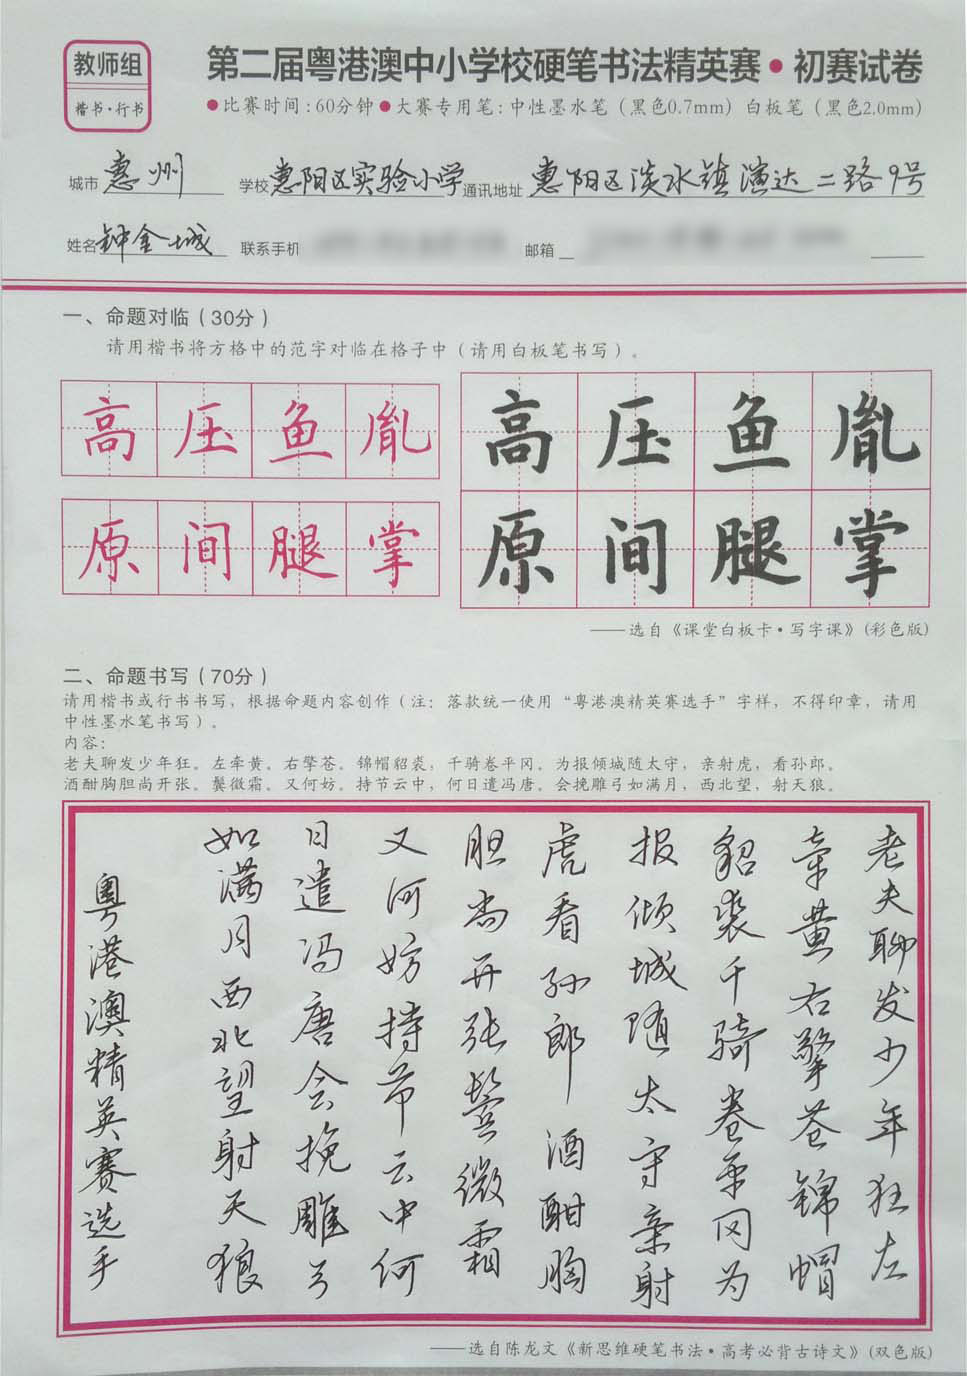 教师组
楷书·行书
第二届粤港澳中小学校硬笔书法精英赛·初赛试卷
●比赛时间:60分钟●大赛专用笔:中性墨水笔(黑色0.7mm) 白板笔(黑色2.0mm)
城市 惠州 学校 惠阳区实验小学 通讯地址 惠阳区淡水镇演达二路9号
姓名 钟金城 联系手机 邮箱
一、命题对临(30分)
请用楷书将方格中的范字对临在格子中(请用白板笔书写)。
高压鱼胤
原间腿掌
高压鱼胤
原间腿掌
——选自《课堂白板卡·写字课》(彩色版)
二、命题书写(70分)
请用楷书或行书书写,根据命题内容创作(注:落款统一使用“粤港澳精英赛选手”字样,不得印章,请用
中性墨水笔书写)。
内容:
老夫聊发少年狂。左牵黄。右擎苍。锦帽貂裘,千骑卷平冈。为报倾城随太守,亲射虎,看孙郎。
酒酣胸胆尚开张。鬓微霜。又何妨。持节云中,何日遣冯唐。会挽雕弓如满月,西北望,射天狼。
老夫聊发少年狂左
牵黄右擎苍锦帽
貂裘千骑卷平冈为
报倾城随太守亲射
虎看孙郎酒酣胸
胆尚开张鬓微霜
又何妨持节云中何
日遣冯唐会挽雕弓
如满月西北望射天狼
粤港澳精英赛选手
——选自陈龙文《新思维硬笔书法·高考必背古诗文》(双色版)